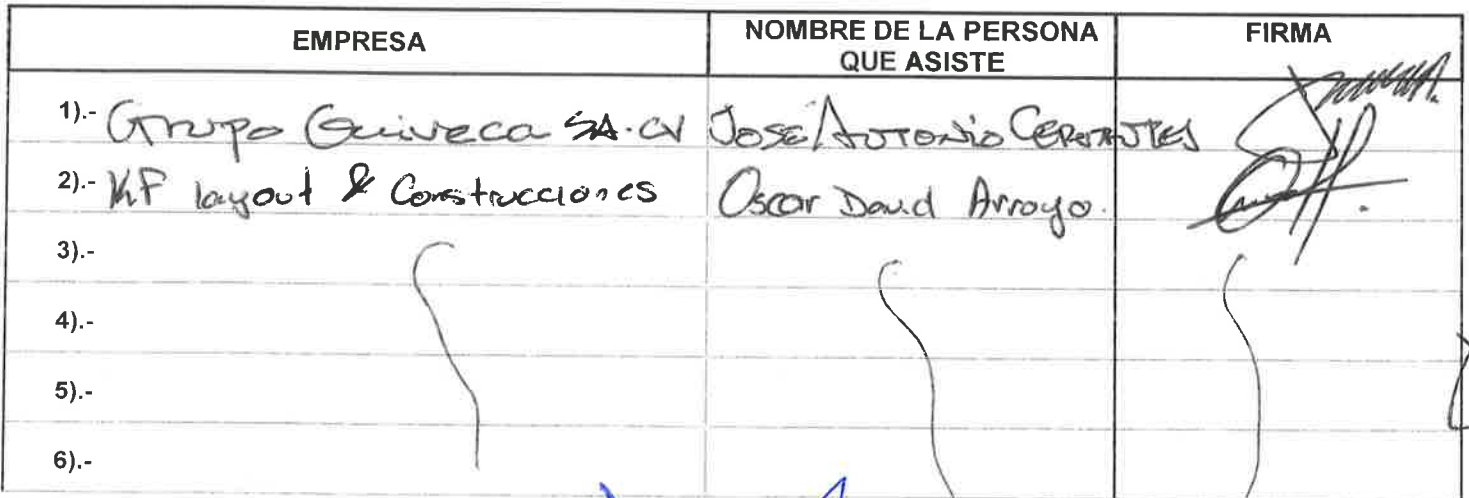 EMPRESA NOMBRE DE LA PERSONA QUE ASISTE FIRMA
1).- Grupo Guiveca SA. CV JOSE ANTONIO CERVANTES
2).- KF layout & Construcciones Oscar David Arroyo.
3).-
4).-
5).-
6).-